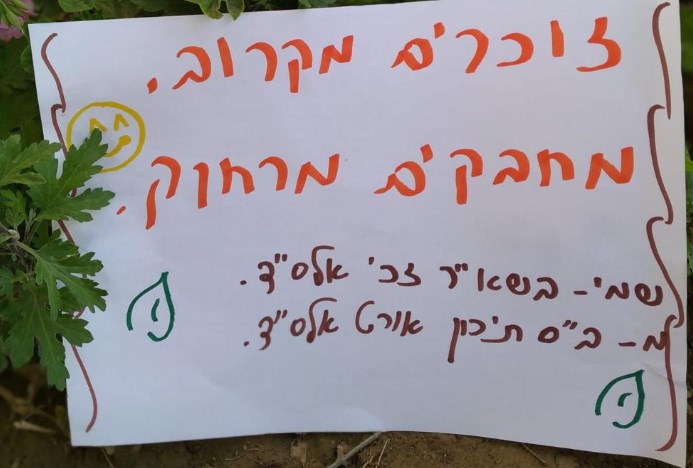 זוכרים מקרוב.
מחבקים מרחוק.
נשמי- בנשא"ר זכי אלס"ד.
מ- ב"ס תיכון אורט אלס"ד.